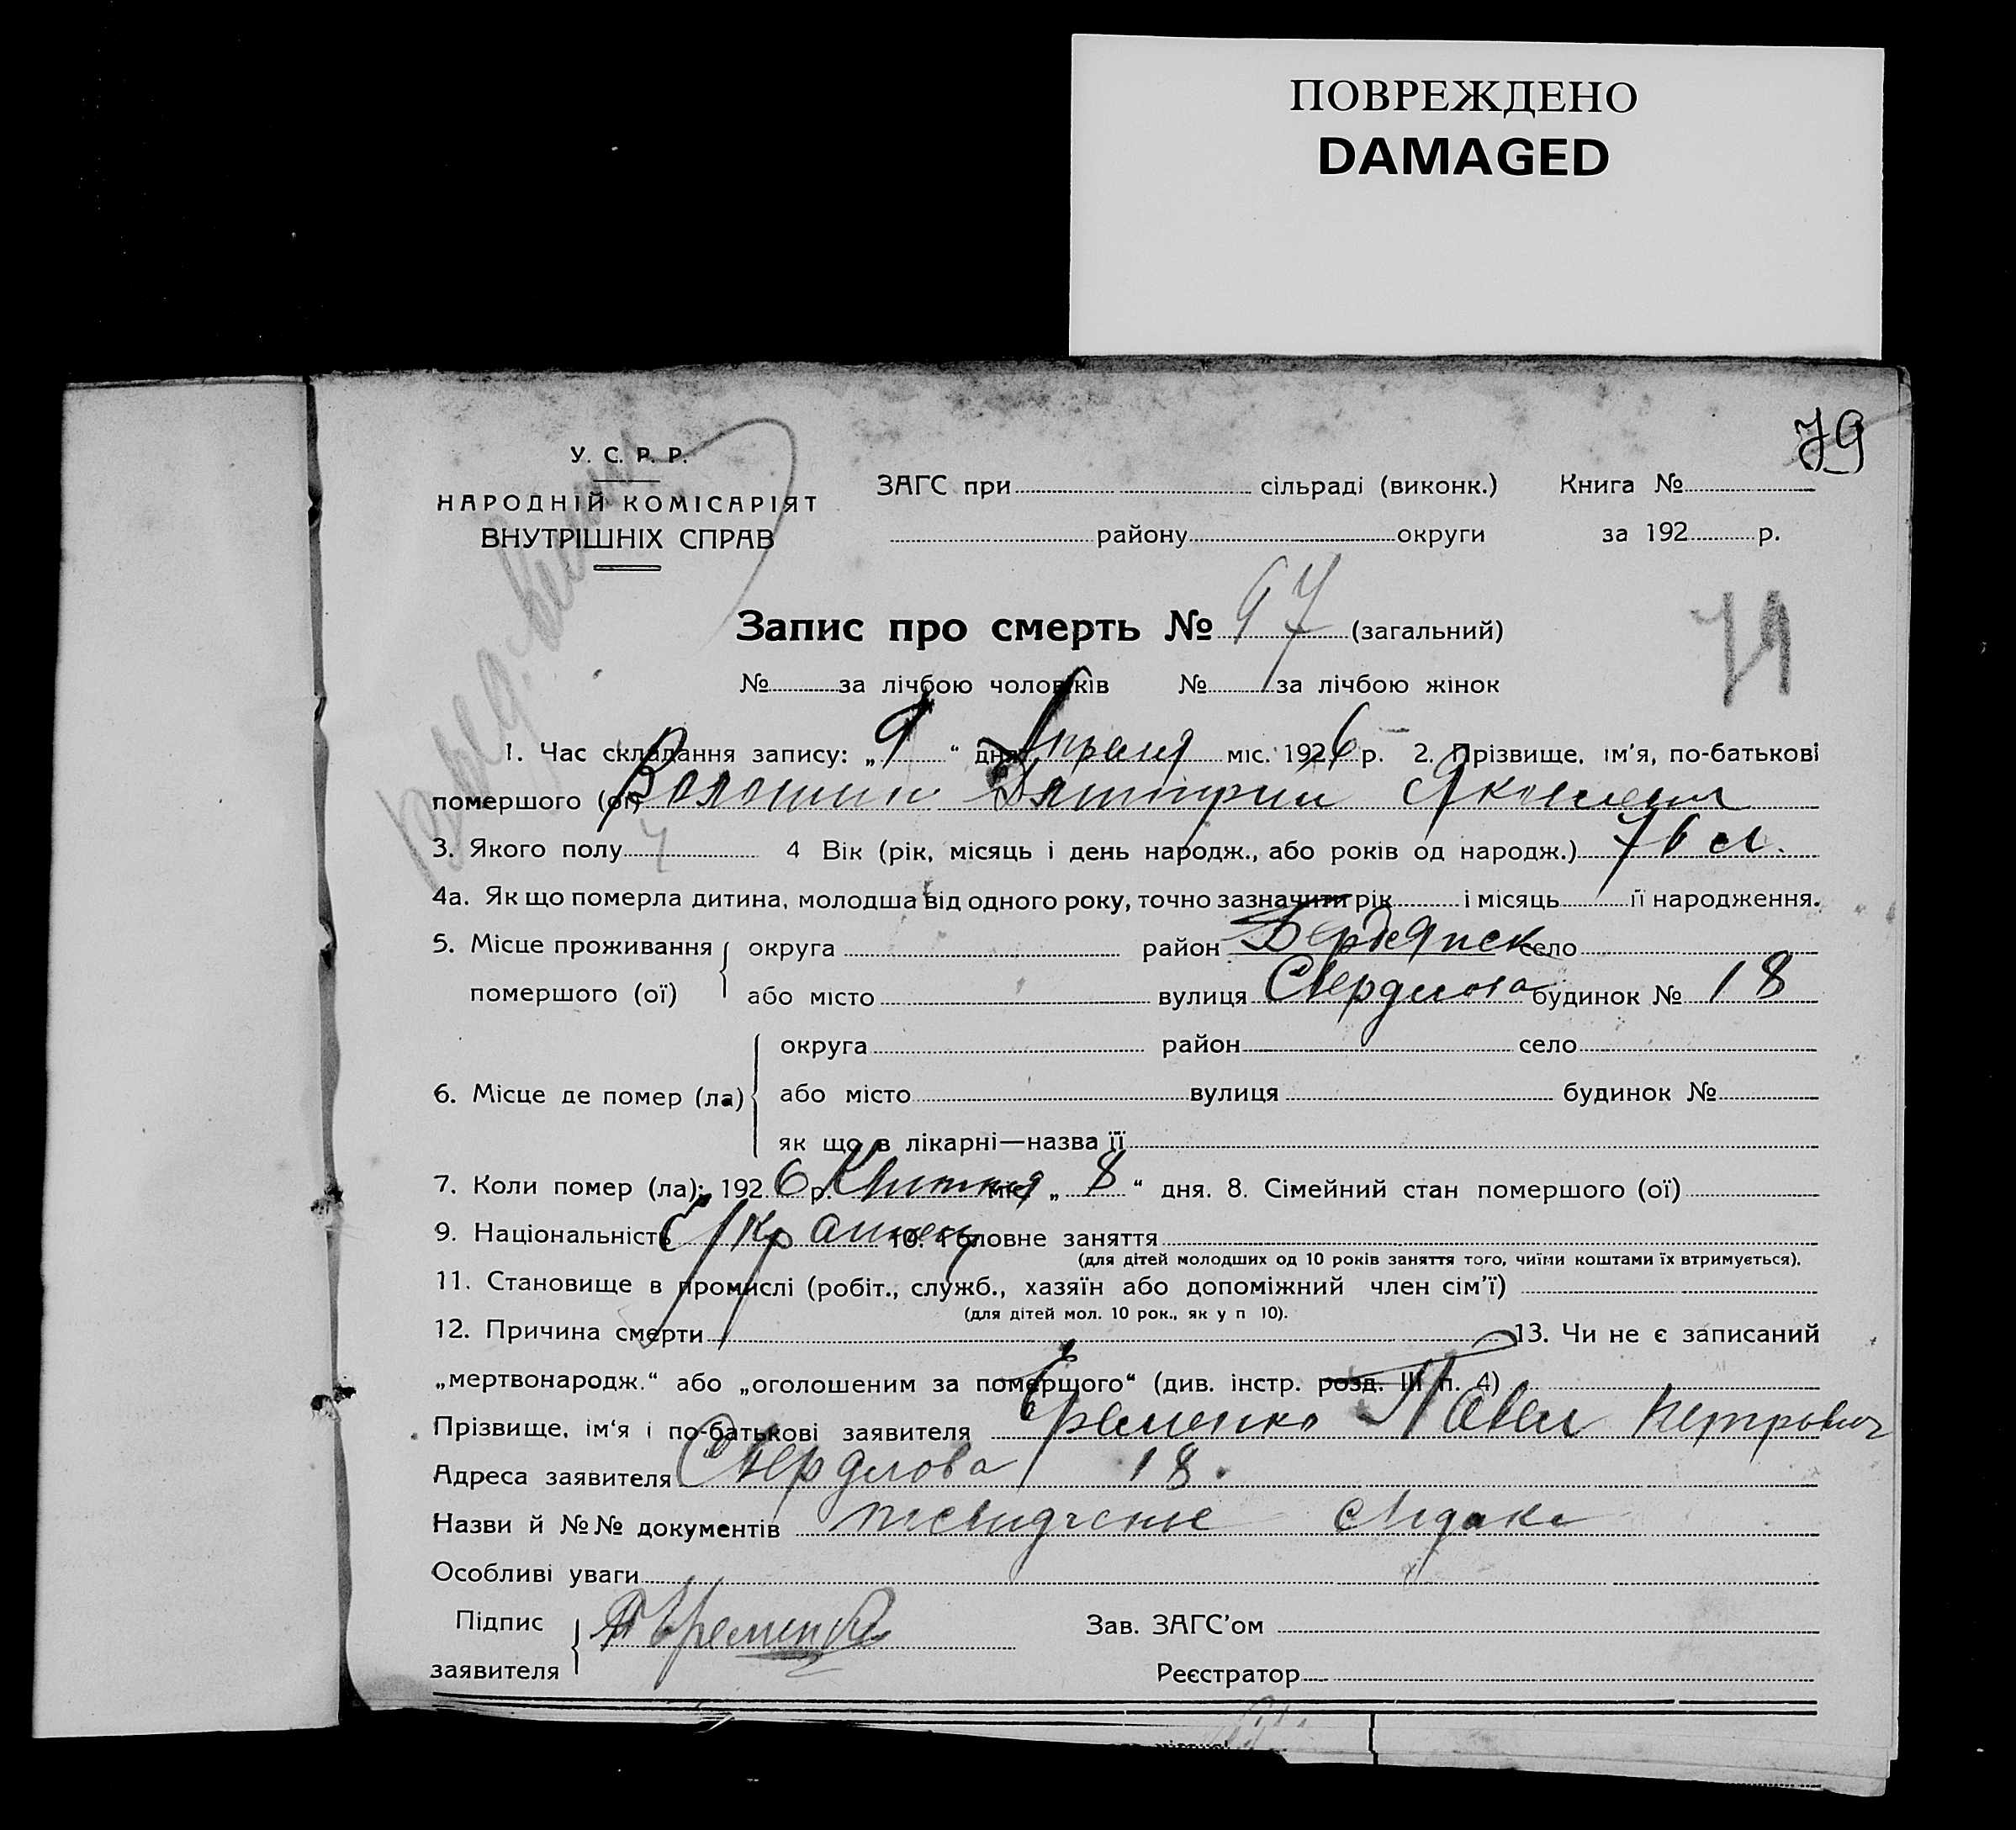 ПОВРЕЖДЕНО
DAMAGED
79
У. С. Р. Р.
НАРОДНІЙ КОМІСАРІЯТ
ВНУТРІШНІХ СПРАВ
ЗАГС при сільраді (виконк.) Книга №
району округи за 192 р.
Запис про смерть № 97 (загальний)
79
№ за лічбою чоловіків № за лічбою жінок
1. Час складання запису: „9“ дня Апреля міс. 1926 р. 2. Прізвище, ім'я, по-батькові
помершого (ої) Волошин Дмитрий Яковлевич
3. Якого полу Ч 4 Вік (рік, місяць і день народж., або років од народж.) 76 л.
4а. Як що померла дитина, молодша від одного року, точно зазначити рік і місяць її народження.
5. Місце проживання округа район Бердянск село
помершого (ої) або місто вулиця Свердлова будинок № 18
округа район село
6. Місце де помер (ла) або місто вулиця будинок №
як що в лікарні—назва її
7. Коли помер (ла): 1926 р. Квитня міс. „8“ дня. 8. Сімейний стан помершого (ої)
9. Національність Украинец 10. Головне заняття
(для дітей молодших од 10 років заняття того, чиїми коштами їх втримується).
11. Становище в промислі (робіт., служб., хазяїн або допоміжний член сім'ї)
(для дітей мол. 10 рок., як у п 10).
12. Причина смерти 13. Чи не є записаний
„мертвонародж.“ або „оголошеним за помершого“ (див. інстр. розд. III п. 4)
Прізвище, ім'я і по-батькові заявителя Еременко Павел Петрович
Адреса заявителя Свердлова 18.
Назви й №№ документів
Особливі уваги
Підпис
заявителя П Еременко
Зав. ЗАГС'ом
Реєстратор